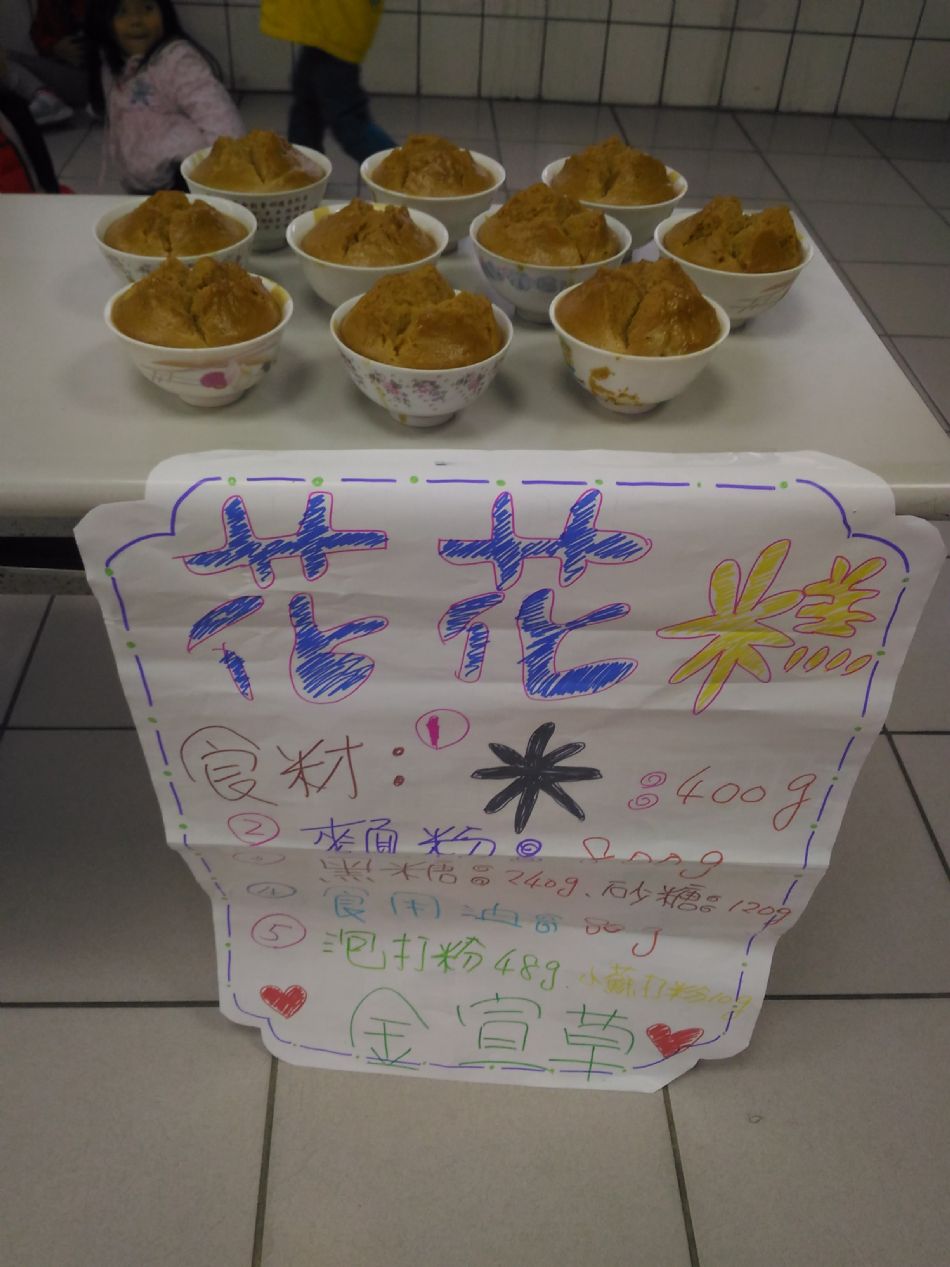 花花糕
食材：① 米：400g
② 麵粉：
黑糖：240g、砂糖：120g
④ 食用油：
⑤ 泡打粉48g、小蘇打粉10g
金宣草